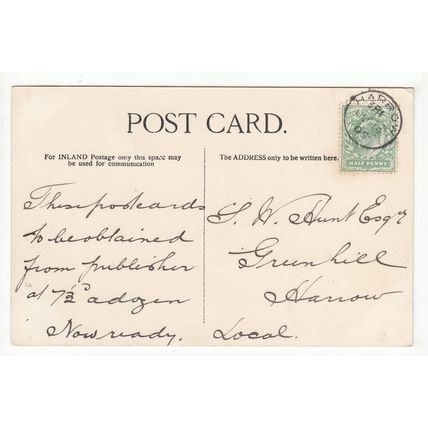 POST CARD.
For INLAND Postage only this space may
be used for communication
The ADDRESS only to be written here.
HARROW
HALF PENNY
These postcards
to be obtained
from publisher
at 7½ᴰ a dozen
Now ready.
S. W. Hunt Esqr
Greenhill
Harrow
Local.